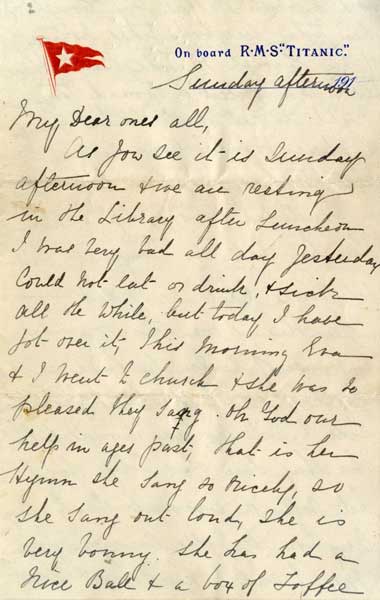 On board R·M·S. "TITANIC."
Sunday afternoon 191
My Dear ones all,
As you see it is Sunday
afternoon & we are resting
in the Library after Luncheon
I was very bad all day Yesterday
Could not eat or drink, & sick
all the while, but today I have
got over it, This Morning Eva
& I went to church & she was so
pleased they sang. Oh God our
help in ages past, that is her
Hymn she sang so nicely, so
she sang out loud, she is
very bonny. she has had a
Nice Ball & a box of Toffee